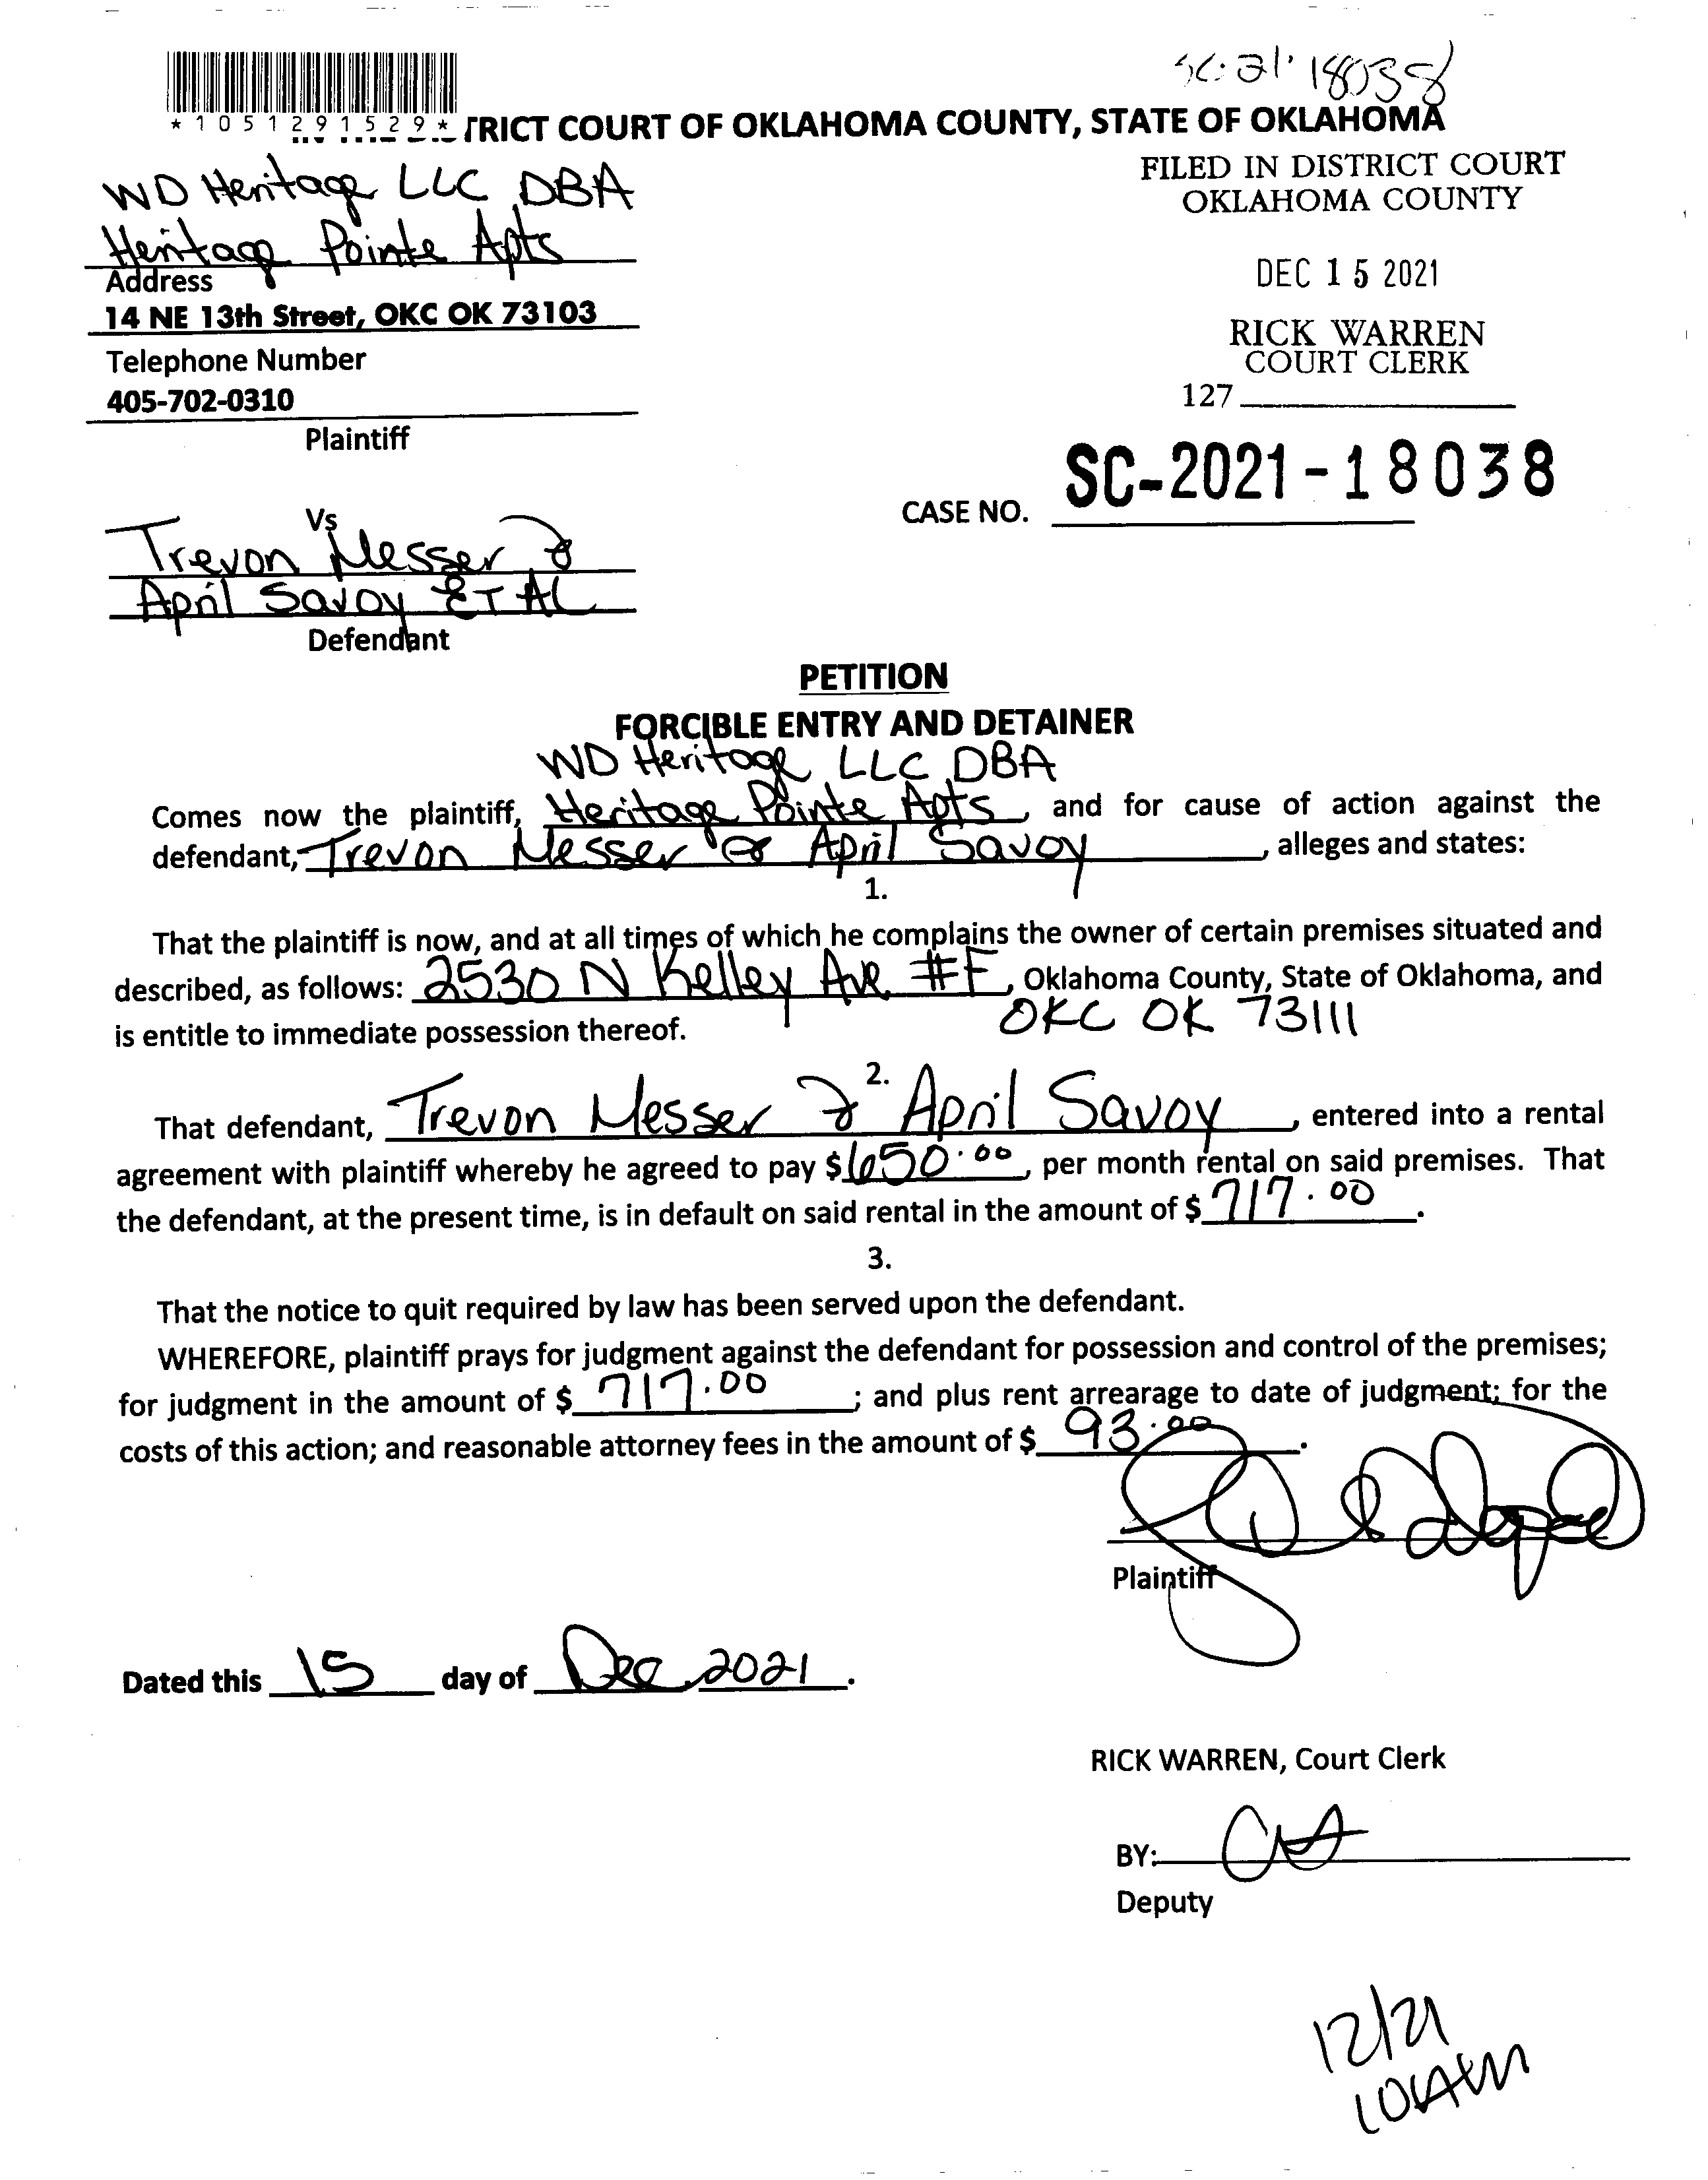 SC-21-18038
*1051291529*
TRICT COURT OF OKLAHOMA COUNTY, STATE OF OKLAHOMA
FILED IN DISTRICT COURT
OKLAHOMA COUNTY
DEC 15 2021
RICK WARREN
COURT CLERK
127
WD Heritage LLC DBA
Heritage Pointe Apts
Address
14 NE 13th Street, OKC OK 73103
Telephone Number
405-702-0310
Plaintiff
CASE NO. SC-2021-18038
Vs
Trevon Messer &
April Savoy ET AL
Defendant
PETITION
FORCIBLE ENTRY AND DETAINER
WD Heritage LLC DBA
Comes now the plaintiff, Heritage Pointe Apts, and for cause of action against the
defendant, Trevon Messer & April Savoy, alleges and states:
1.
That the plaintiff is now, and at all times of which he complains the owner of certain premises situated and
described, as follows: 2530 N Kelley Ave #F, Oklahoma County, State of Oklahoma, and
OKC OK 73111
is entitle to immediate possession thereof.
2.
That defendant, Trevon Messer & April Savoy, entered into a rental
agreement with plaintiff whereby he agreed to pay $650.00, per month rental on said premises. That
the defendant, at the present time, is in default on said rental in the amount of $717.00.
3.
That the notice to quit required by law has been served upon the defendant.
WHEREFORE, plaintiff prays for judgment against the defendant for possession and control of the premises;
for judgment in the amount of $717.00; and plus rent arrearage to date of judgment; for the
costs of this action; and reasonable attorney fees in the amount of $93.00.
Plaintiff
Dated this 15 day of Dec, 2021.
RICK WARREN, Court Clerk
BY:
Deputy
12/21
10AM